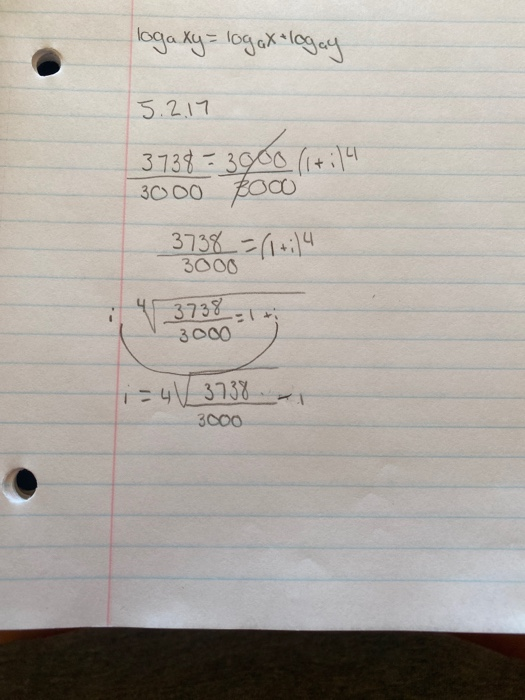 logₐ xy = logₐx + logₐy
5.2.17
3738/3000 = 3000/3000 (1+i)⁴
3738/3000 = (1+i)⁴
i ⁴√3738/3000 = 1 + i
i = 4√3738/3000 - 1